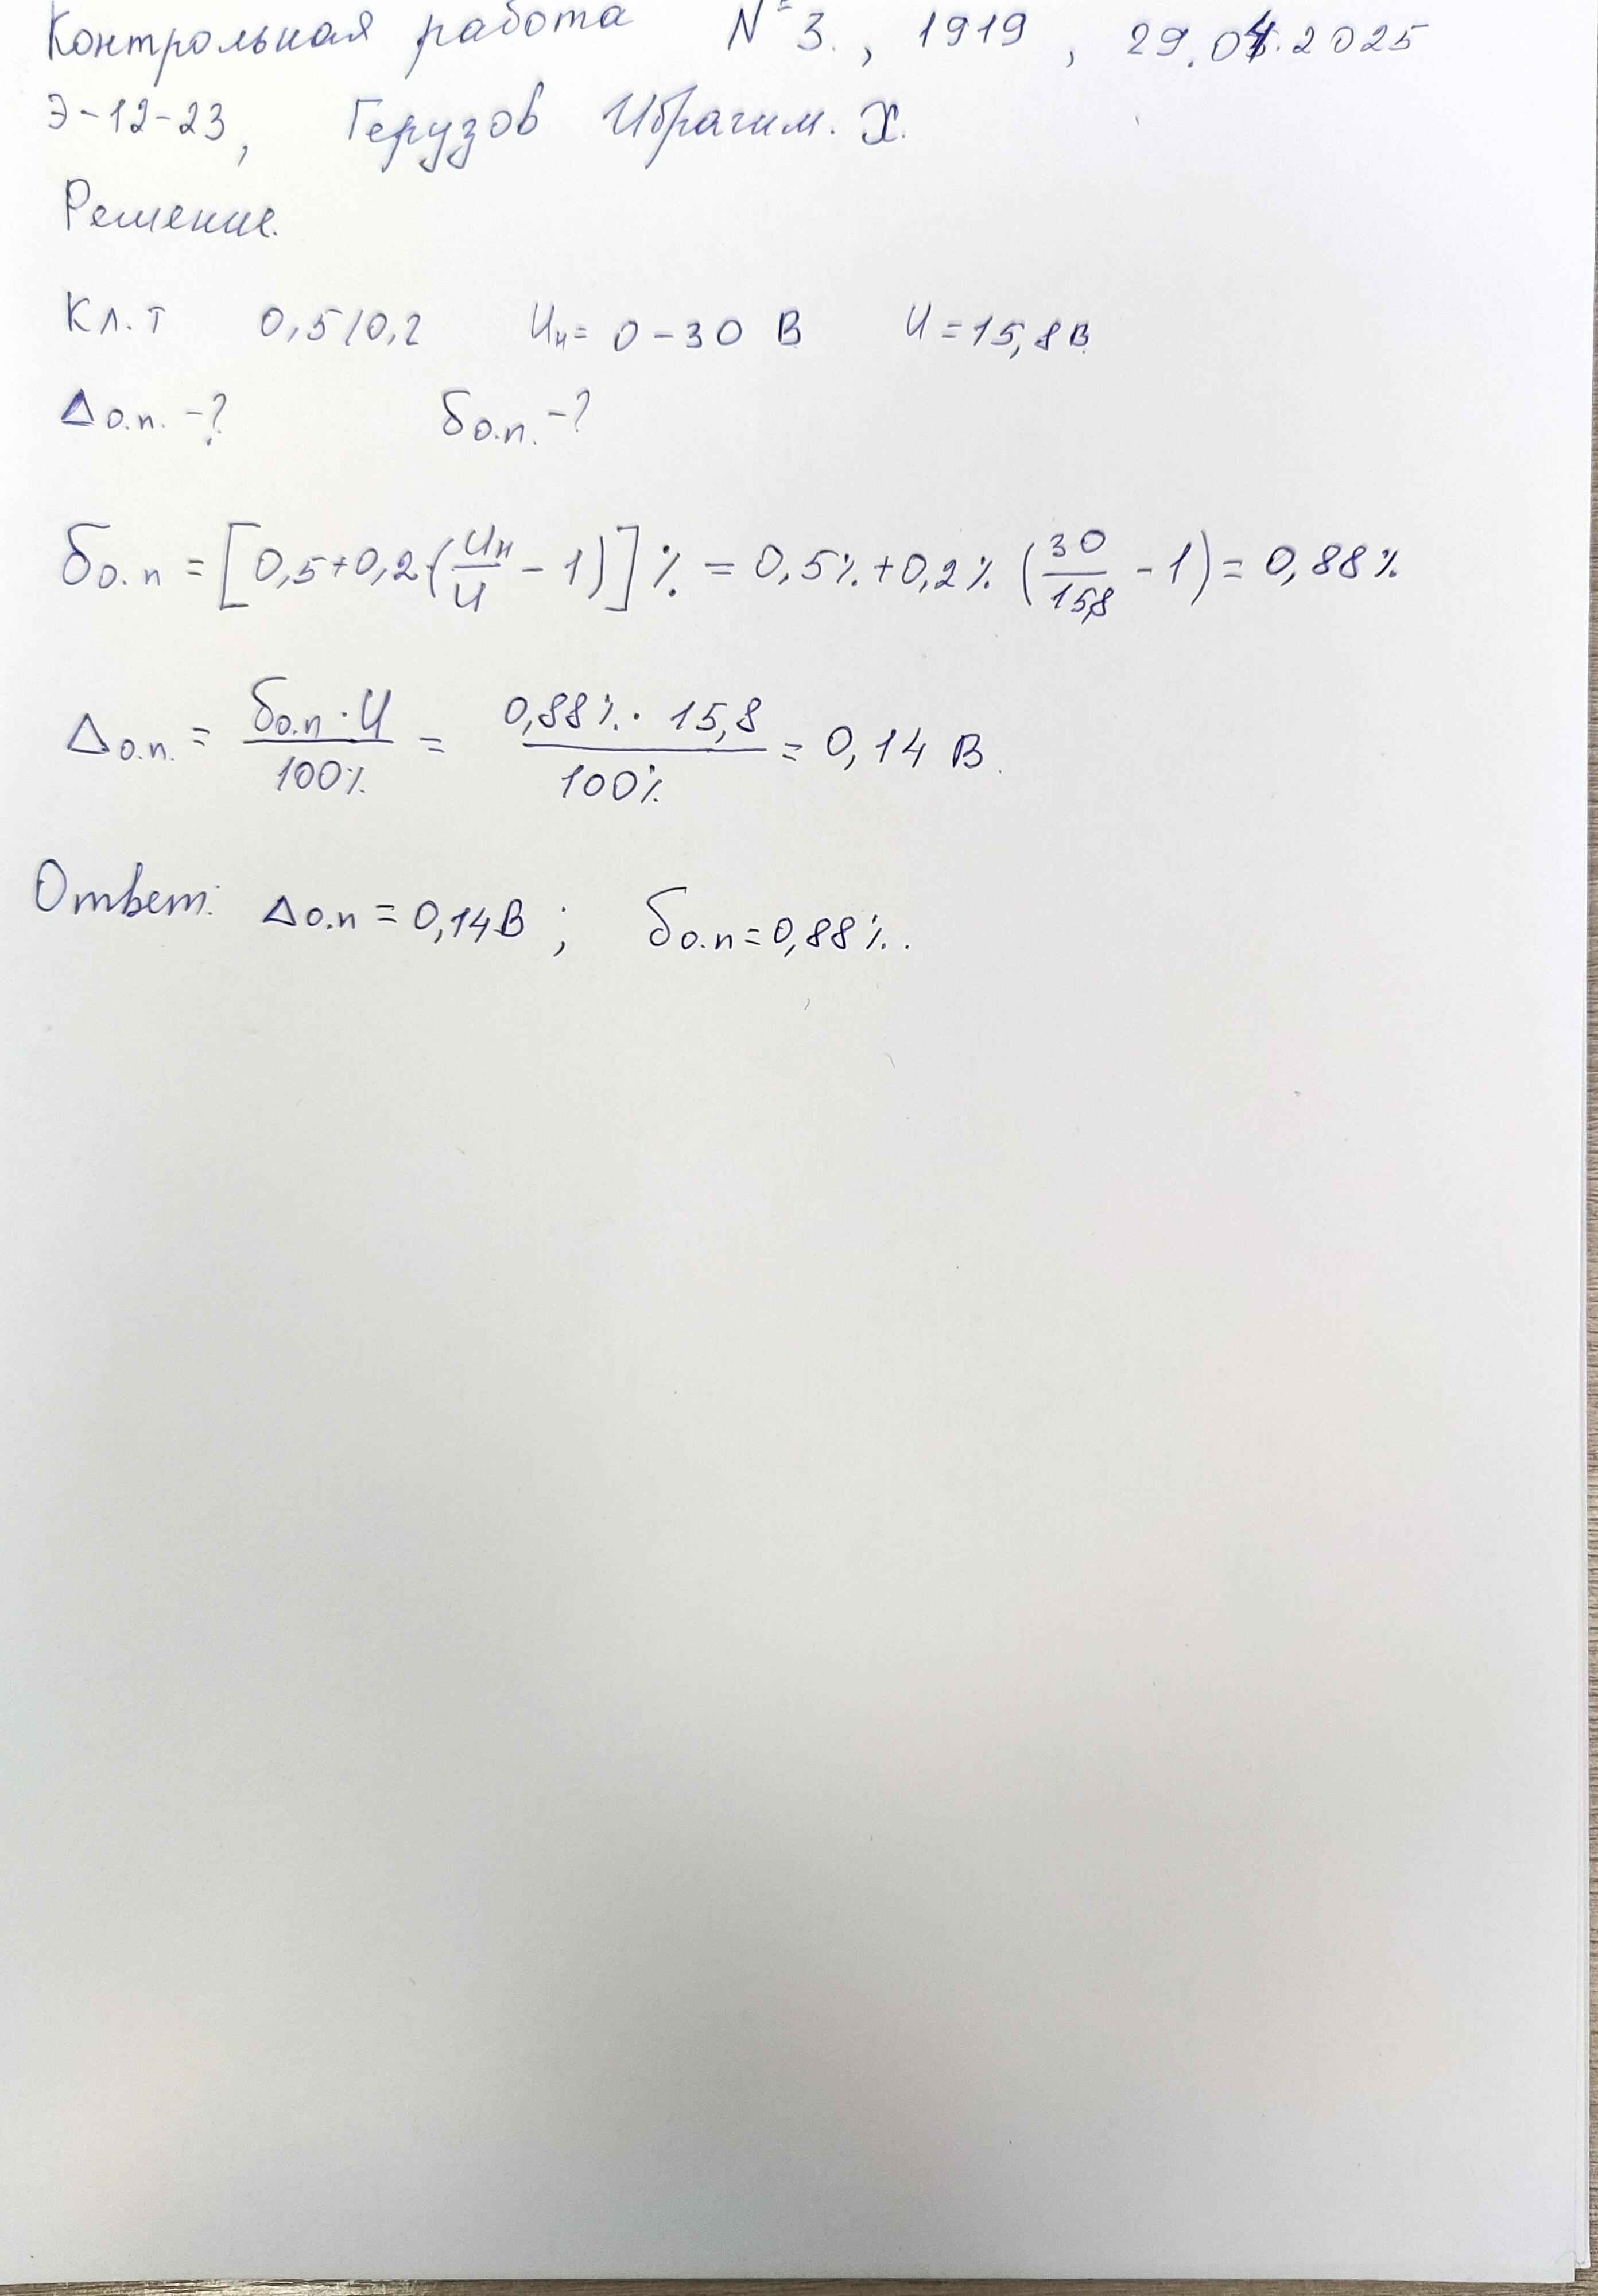 Контрольная работа № 3., 1919, 29.04.2025
Э-12-23, Герузов Ибрагим. Х.
Решение.
Кл.т 0,5/0,2 Uн= 0-30 В U=15,8В
Δо.п. -? δо.п. -?
δо.п = [0,5+0,2·(Uн/U - 1)] % = 0,5%+0,2% (30/15,8 - 1) = 0,88%
Δо.п. = δо.п · U / 100% = 0,88% · 15,8 / 100% = 0,14 В.
Ответ: Δо.п = 0,14В ; δо.п=0,88%.